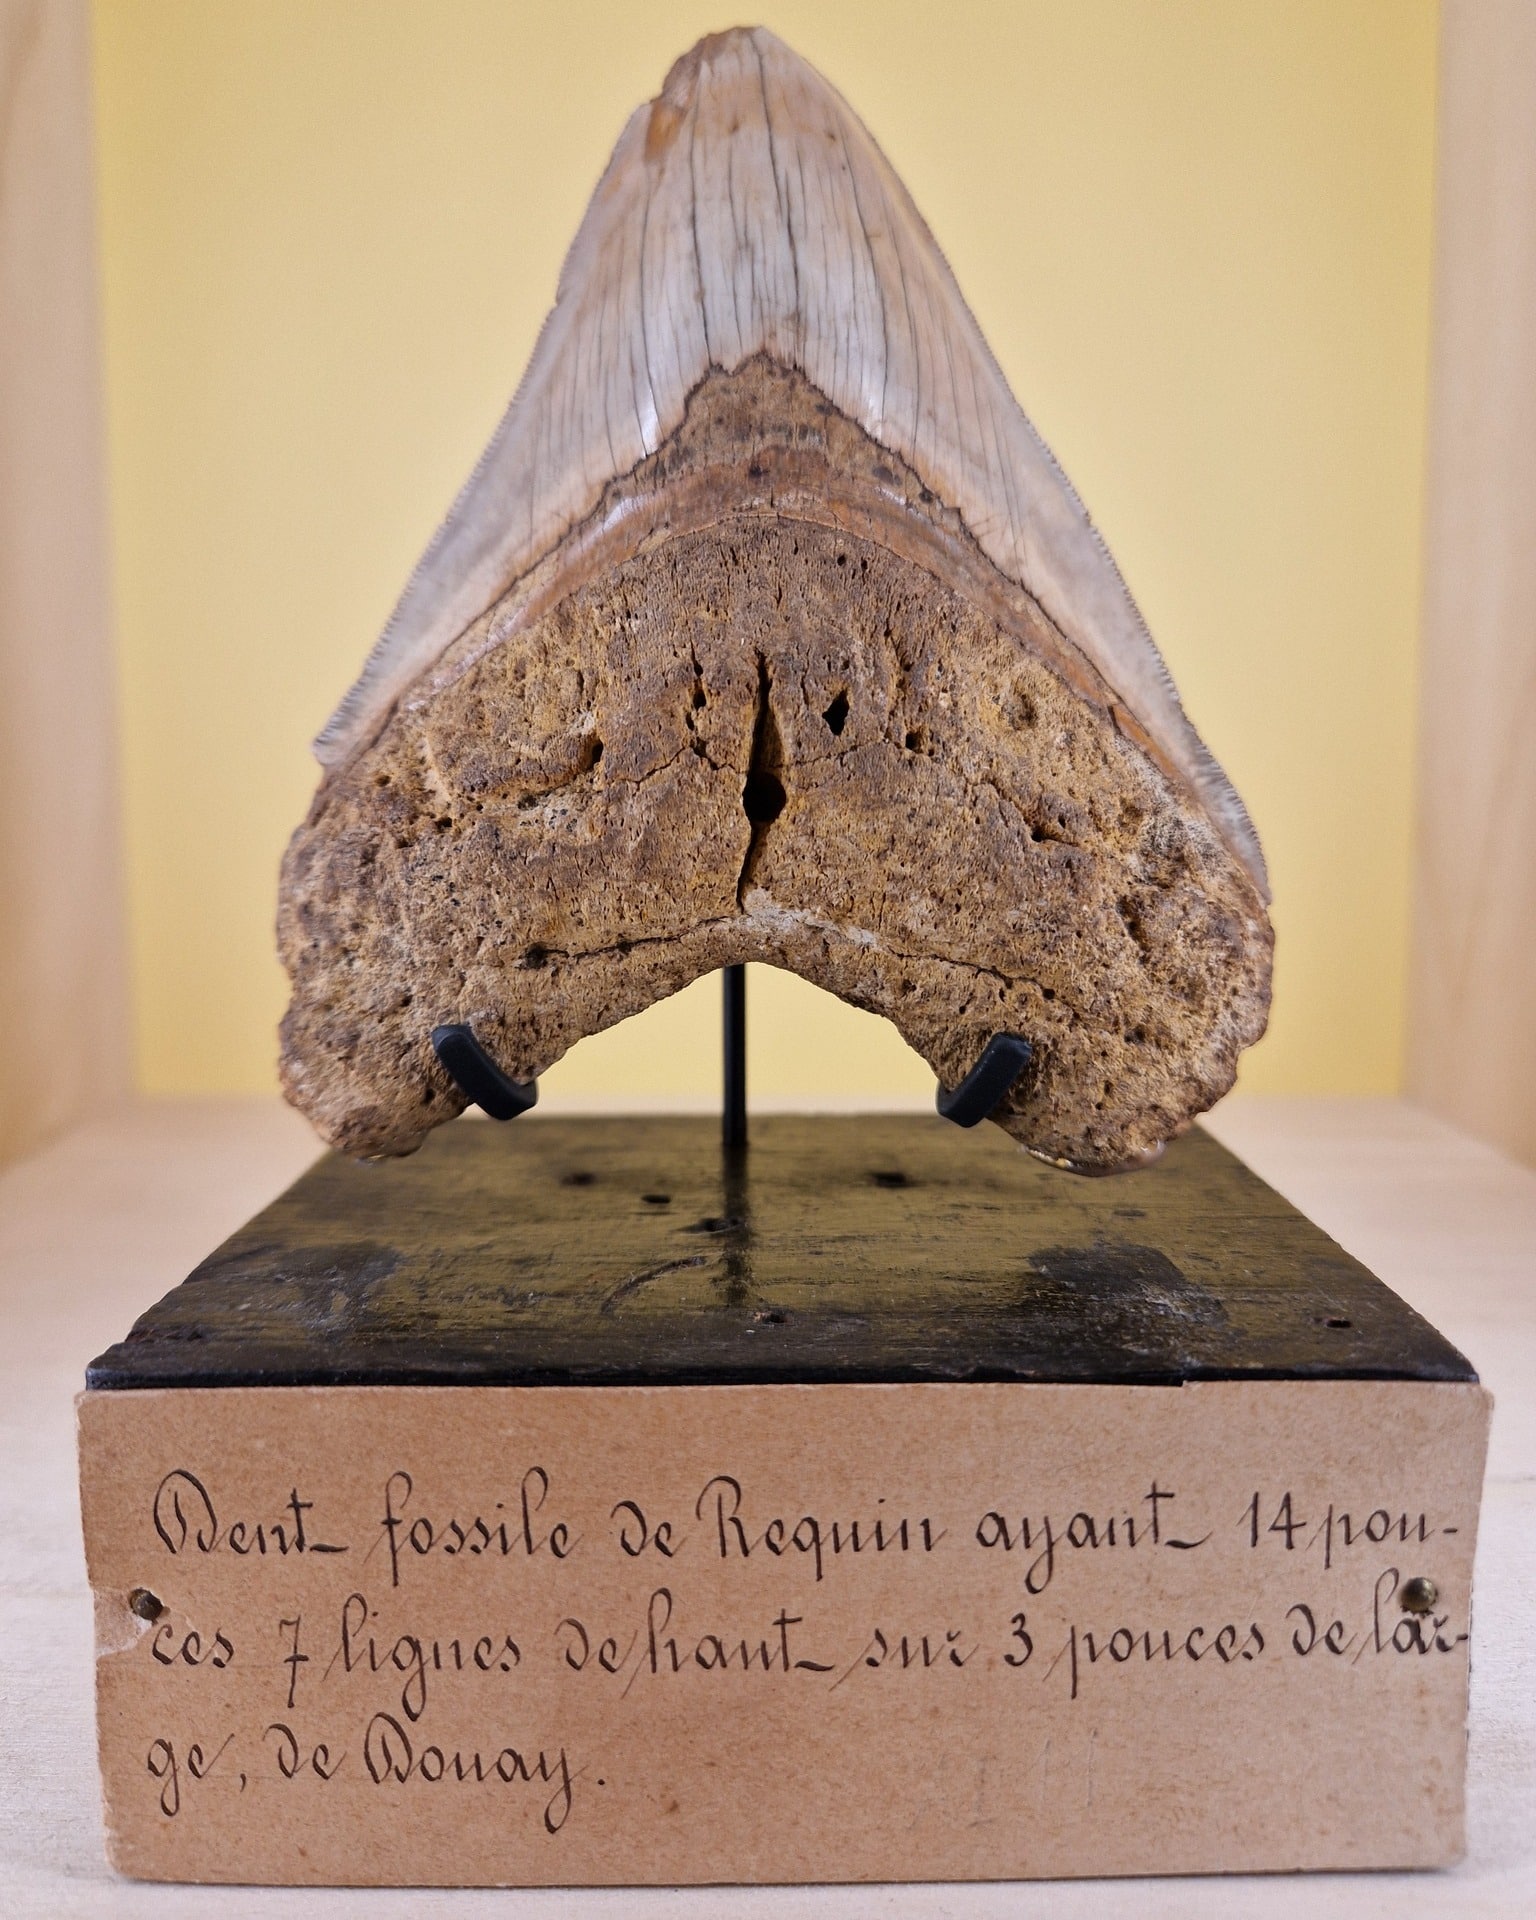 Dent fossile de Requin ayant 14 pou-
ces 7 lignes de haut sur 3 pouces de lar-
ge, de Douay.